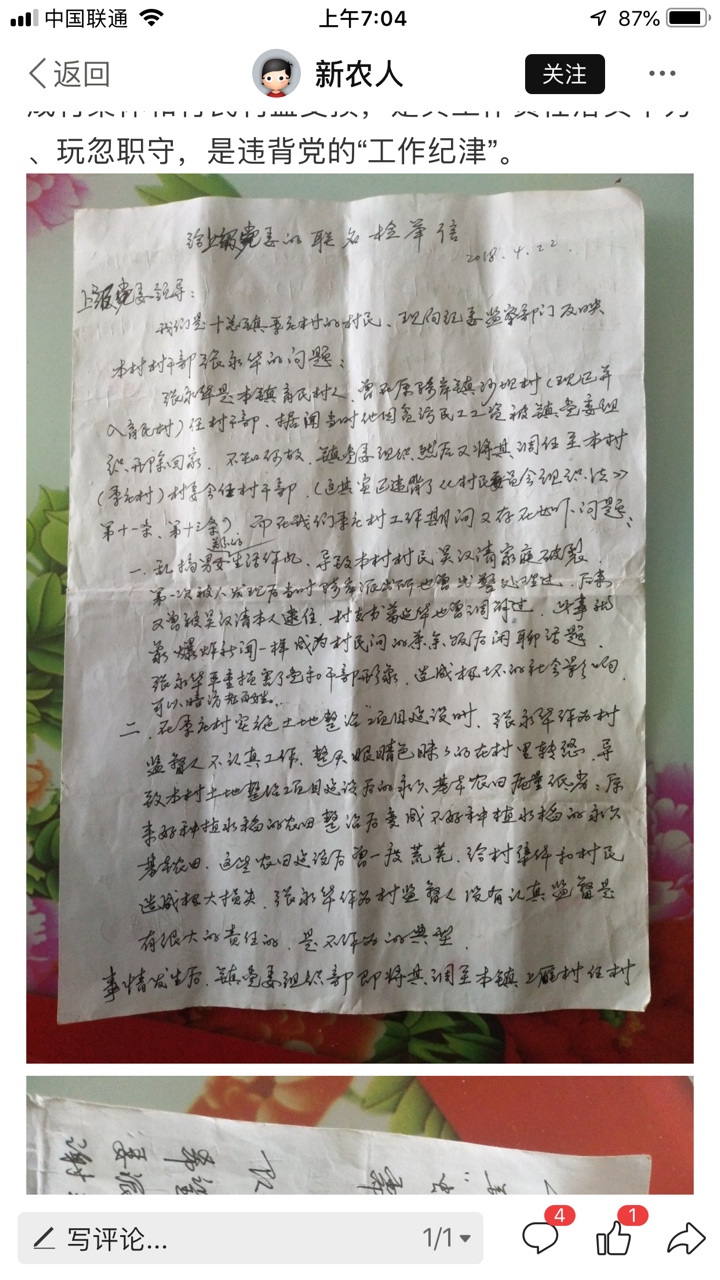 中国联通
上午7:04
87%
返回
新农人
关注
、玩忽职守，是违背党的“工作纪津”。
给上级党委的联名检举信
2018.4.22.
上级党委领导：
我们是十总镇季元村的村民、现向纪委监察部门反映
本村村干部张永华的问题：
张永华是本镇育民村人、曾在原骑岸镇沙坝村（现已并
入育民村）任村干部、据闻当时他因贪污民工工资被镇党委组
织开除回家．不知何故．镇党委组织然后又将其调任至本村
（季元村）村委会任村干部．（这其实已违背了《村民委员会组织法》
第十一条、第十三条）．而在我们季元村工作期间又存在如下问题：
一．乱搞男女生活作风、导致本村村民吴汉清家庭破裂．
第一次被人发现后当时骑岸派出所也曾出警处理过．后来
又曾被吴汉清本人逮住．村支书葛延华也曾调解过．此事就
象爆炸新闻一样成为村民间的茶余饭后闲聊话题．
张永华严重损害了党和干部形象．造成极坏的社会影响．
可以暗访老百姓．
二．在季元村实施土地整治项目建设时．张永华作为村
监督人不认真工作．整天眼睛色眯々的在村里转悠．导
致本村土地整治项目建设后的永久基本农田质量低劣：原
来好种植水稻的农田整治后变成不好种植水稻的永久
基本农田．这些农田建设后曾一度荒芜．给村集体和村民
造成极大损失．张永华作为村监督人没有认真监督是
有很大的责任的．是不作为的典型．
事情发生后．镇党委组织部即将其调至本镇上雁村任村
写评论...
1/1
4
1